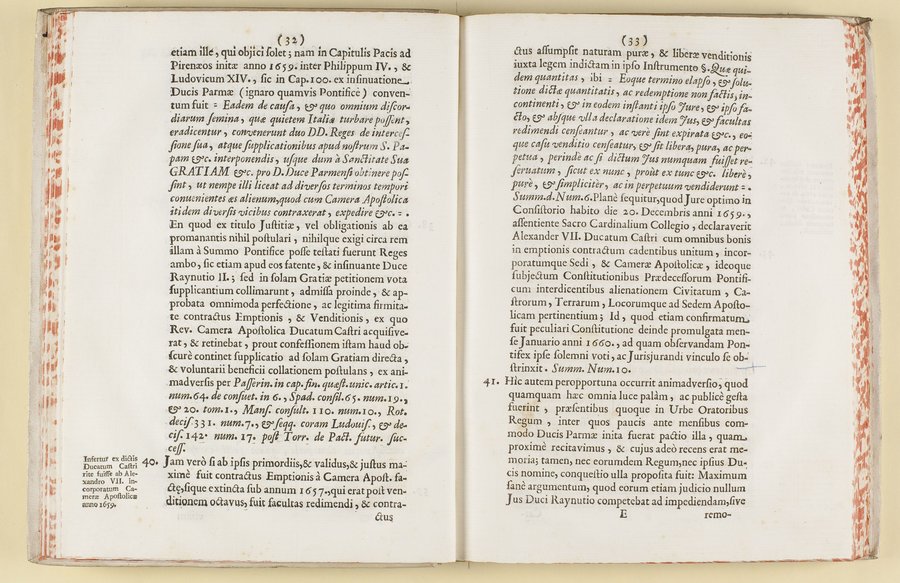 (32)
etiam ille, qui objici solet; nam in Capitulis Pacis ad
Pirenæos initæ anno 1659. inter Philippum IV., &
Ludovicum XIV., sic in Cap. 100. ex insinuatione
Ducis Parmæ (ignaro quamvis Pontifice) conven-
tum fuit = Eadem de causa, & quo omnium discor-
diarum semina, quæ quietem Italiæ turbare possent,
eradicentur, convenerunt duo DD. Reges de interces-
sione sua, atque supplicationibus apud nostrum S. Pa-
pam &c. interponendis, usque dum à Sanctitate Sua
GRATIAM &c. pro D. Duce Parmensi obtinere pos-
sint, ut nempe illi liceat ad diversos terminos tempori
convenientes æs alienum, quod cum Camera Apostolica
itidem diversis vicibus contraxerat, expedire &c. = .
En quod ex titulo Justitiæ, vel obligationis ab ea
promanantis nihil postulari, nihilque exigi circa rem
illam à Summo Pontifice posse testati fuerunt Reges
ambo, sic etiam apud eos fatente, & insinuante Duce
Raynutio II.; sed in solam Gratiæ petitionem vota
supplicantium collimarunt, admissa proinde, & ap-
probata omnimoda perfectione, ac legitima firmita-
te contractus Emptionis, & Venditionis, ex quo
Rev. Camera Apostolica Ducatum Castri acquisive-
rat, & retinebat, prout confessionem istam haud ob-
scurè continet supplicatio ad solam Gratiam directa,
& voluntarii beneficii collationem postulans, ex ani-
madversis per Passerin. in cap. fin. quæst. unic. artic. 1.
num. 64. de consuet. in 6., Spad. consil. 65. num. 19.,
& 20. tom. 1., Mans. consult. 110. num. 10., Rot.
decis. 331. num. 7., & seqq. coram Ludovis., & de-
cis. 142. num. 17. post Torr. de Pact. futur. suc-
cess.
Infertur ex dictis
Ducatum Castri
rite fuisse ab Ale-
xandro VII. in-
corporatum Ca-
meræ Apostolicæ
anno 1659.
40. Jam verò si ab ipsis primordiis, & validus, & justus ma-
ximè fuit contractus Emptionis à Camera Apost. fa-
ctę, sique extincta sub annum 1657., qui erat post ven-
ditionem octavus, fuit facultas redimendi, & contra-
ctus
(33)
ctus assumpsit naturam puræ, & liberæ venditionis
juxta legem indictam in ipso Instrumento §. Quæ qui-
dem quantitas, ibi = Eoque termino elapso, & solu-
tione dictæ quantitatis, ac redemptione non factis, in-
continenti, & in eodem instanti ipso Jure, & ipso fa-
cto, & absque ulla declaratione idem Jus, & facultas
redimendi censeantur, ac verè sint expirata &c., eo-
que casu venditio censeatur, & sit libera, pura, ac per-
petua, perindè ac si dictum Jus numquam fuisset re-
servatum, sicut ex nunc, proùt ex tunc &c. liberè,
purè, & simplicitèr, ac in perpetuum vendiderunt = .
Summ. d. Num. 6. Planè sequitur, quod Jure optimo in
Consistorio habito die 20. Decembris anni 1659.,
assentiente Sacro Cardinalium Collegio, declaraverit
Alexander VII. Ducatum Castri cum omnibus bonis
in emptionis contractum cadentibus unitum, incor-
poratumque Sedi, & Cameræ Apostolicæ, ideoque
subjectum Constitutionibus Prædecessorum Pontifi-
cum interdicentibus alienationem Civitatum, Ca-
strorum, Terrarum, Locorumque ad Sedem Aposto-
licam pertinentium; Id, quod etiam confirmatum
fuit peculiari Constitutione deinde promulgata men-
se Januario anni 1660., ad quam observandam Pon-
tifex ipse solemni voti, ac Jurisjurandi vinculo se ob-
strinxit. Summ. Num. 10.
41. Hic autem peropportuna occurrit animadversio, quod
quamquam hæc omnia luce palàm, ac publicè gesta
fuerint, præsentibus quoque in Urbe Oratoribus
Regum, inter quos paucis ante mensibus com-
modo Ducis Parmæ inita fuerat pactio illa, quam
proximè recitavimus, & cujus adeò recens erat me-
moria; tamen, nec eorumdem Regum, nec ipsius Du-
cis nomine, conquestio ulla proposita fuit: Maximum
sanè argumentum, quod eorum etiam judicio nullum
Jus Duci Raynutio competebat ad impediendam, sive
E
remo-